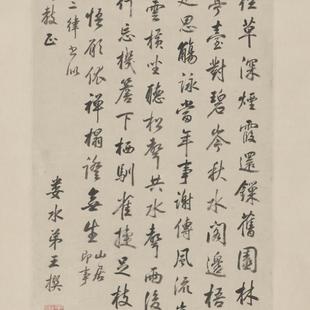 径草深煙霞還鏁舊園林
亭臺對碧岑秋水閣邊梧
思觴詠當年事謝傅風流
雲横坐聽松聲共水聲雨後
行忘機簷下栖馴雀捷足枝
悟願依禅榻證無生山居即事
二律書似
教正
婁水弟王撰